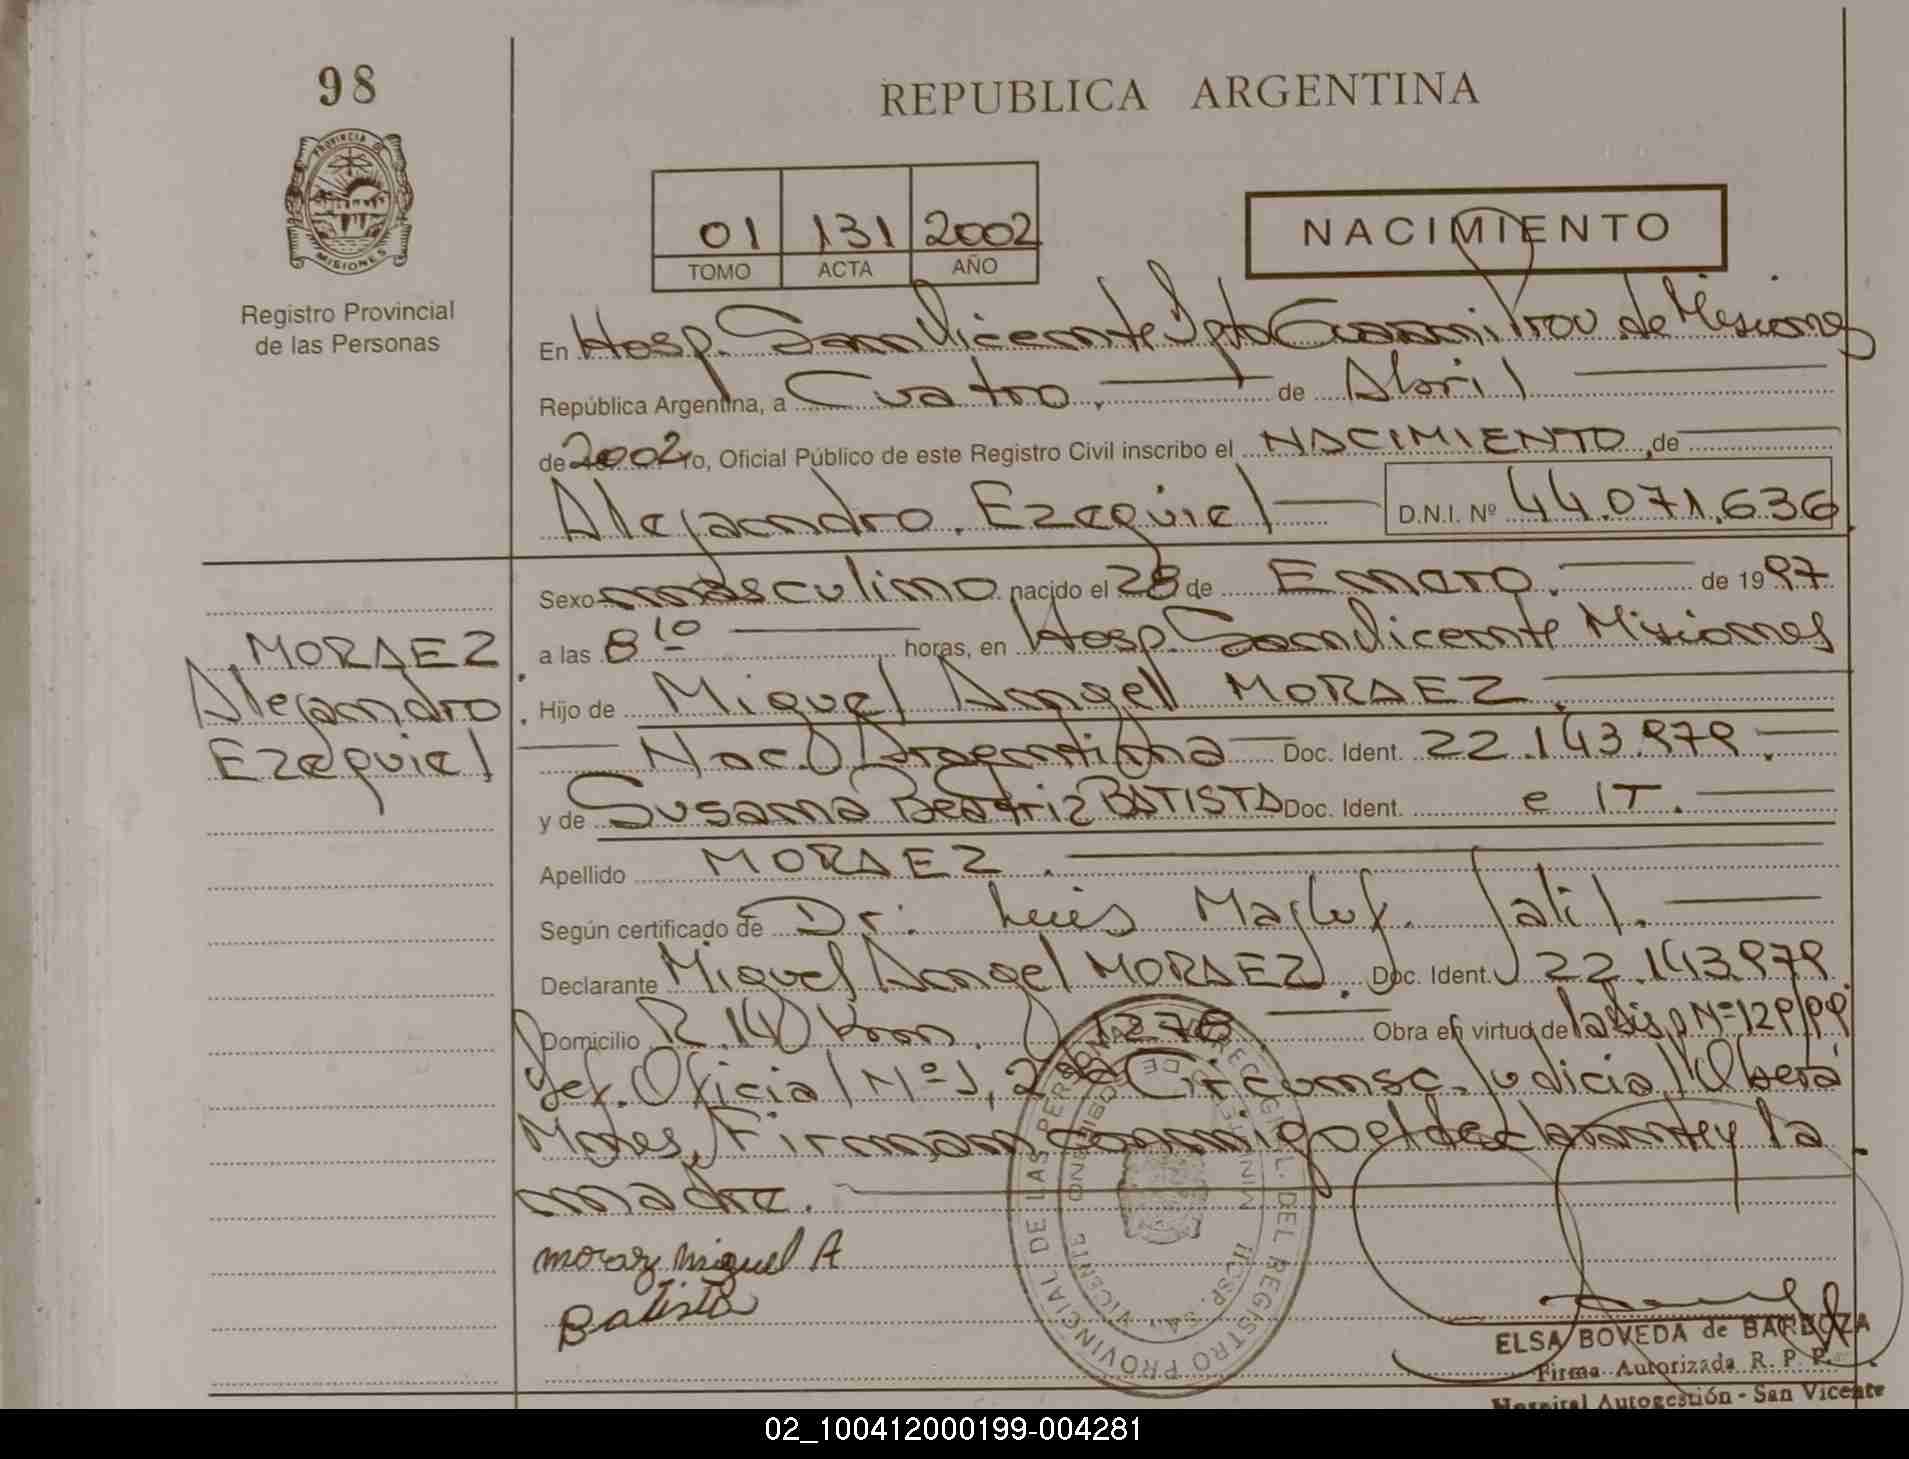 98
REPUBLICA ARGENTINA
PROVINCIA DE
MISIONES
Registro Provincial
de las Personas
01 131 2002
TOMO ACTA AÑO
NACIMIENTO
En Hosp. San Vicente Dpto Guaraní Prov de Misiones
República Argentina, a Cuatro. de Abril
de 2002 Yo, Oficial Público de este Registro Civil inscribo el NACIMIENTO, de
Alejandro. Ezequiel D.N.I. Nº 44.071.636
Sexo masculino nacido el 28 de Enero. de 1997
MORAEZ
Alejandro
Ezequiel
a las 8 10 horas, en Hosp. San Vicente Misiones
Hijo de Miguel Angel MORAEZ.
Nac. Argentina Doc. Ident. 22.143.979.
y de Susana Beatriz BATISTA Doc. Ident. e IT.
Apellido MORAEZ.
Según certificado de Dr. Luis Jalil.
Declarante Miguel Angel MORAEZ. Doc. Ident. 22.143.979
Domicilio R. 14 Km. 1276 Obra en virtud de la Disp Nº 129/99
Def. Oficial Nº 1, 2da Circunsc. Judicial Oberá
Mnes, Firman conmigo el declarante y la
madre.
Moraez Miguel A
Batista
REGISTRO PROVINCIAL DE LAS PERSONAS
HOSP. SAN VICENTE
ELSA BOVEDA de BARBOZA
Firma Autorizada R. P. P.
Hospital Autogestión - San Vicente
02_100412000199-004281